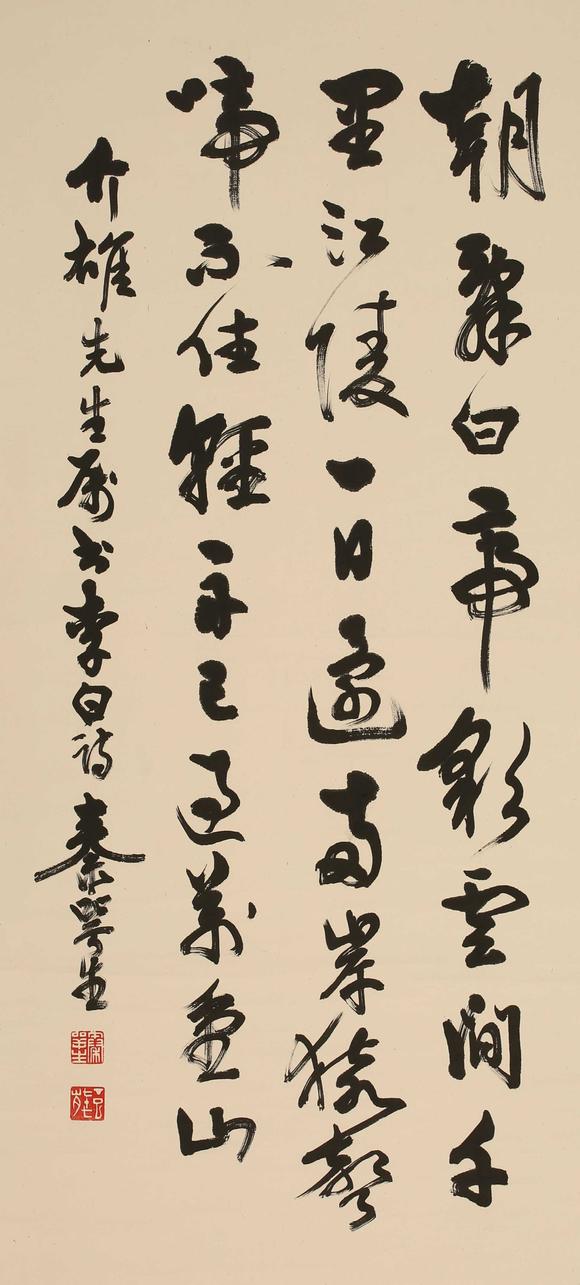 朝辭白帝彩雲間千
里江陵一日還兩岸猿聲
啼不住輕舟已過萬重山
介雄先生属书李白詩 秦咢生